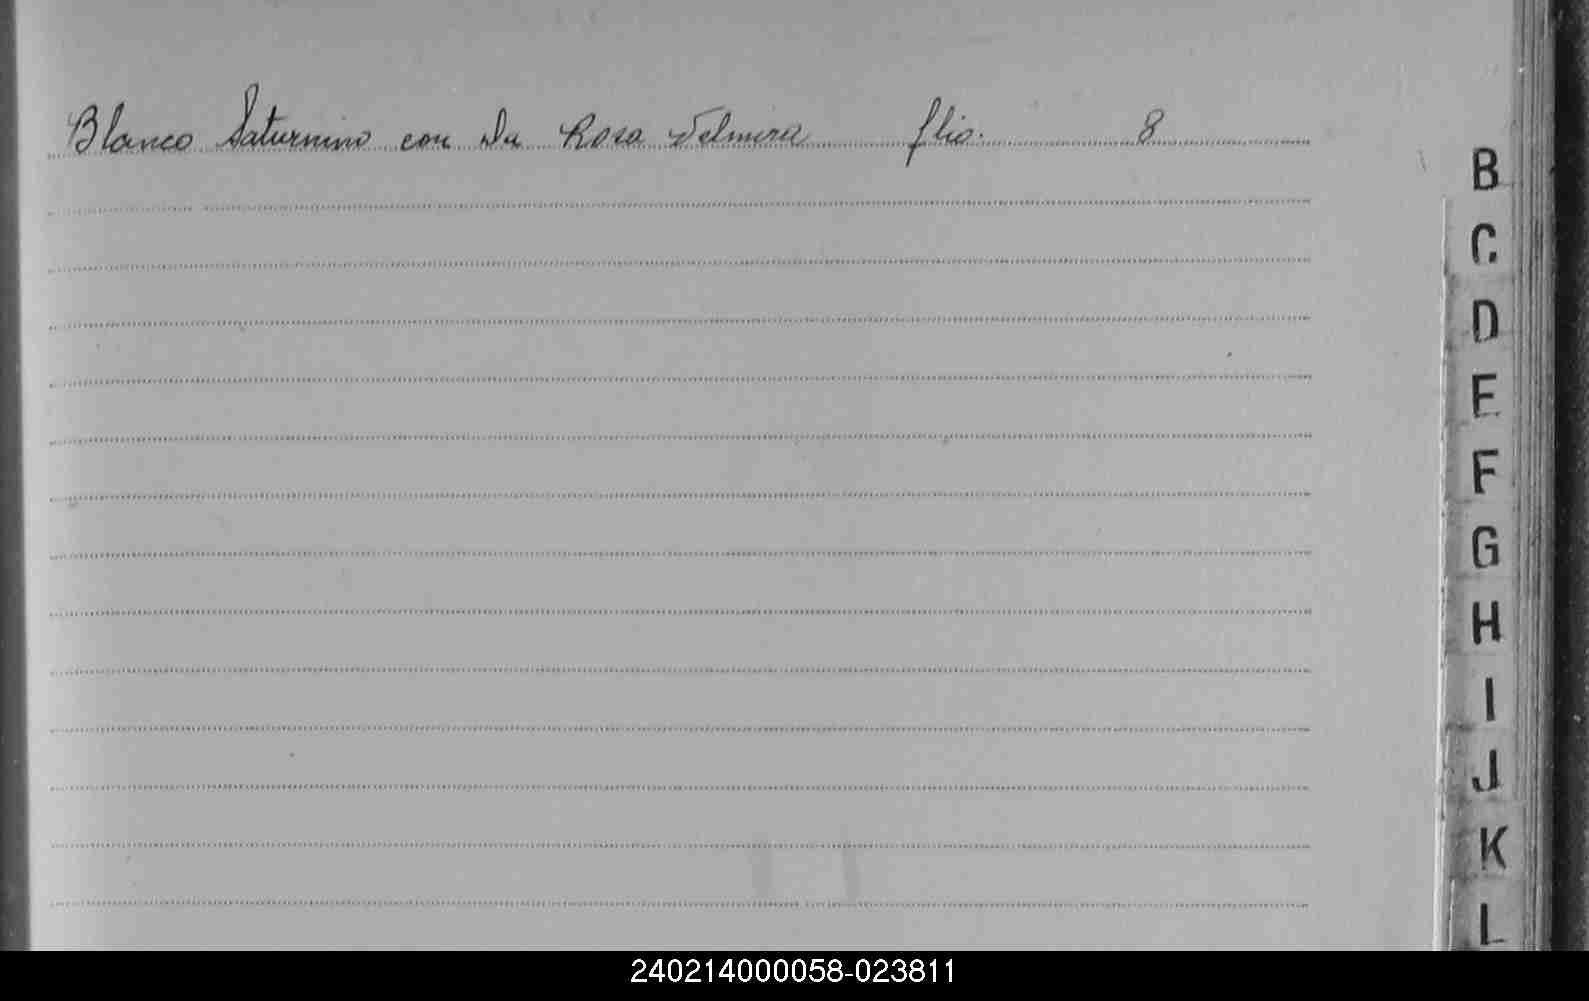 Blanco Saturnino con Da Rosa Velmira flio. 8
B
C
D
E
F
G
H
I
J
K
L
240214000058-023811